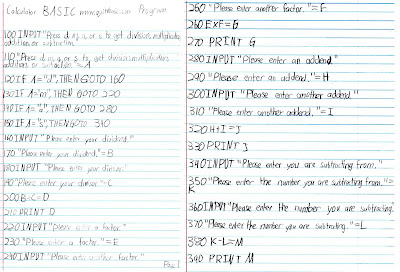 Calculator BASIC www.quitebasic.com Program
100 INPUT "Press d, m, a, or s, to get division, multiplication,
addition or subtraction.
110 "Press d, m, a, or s, to get division, multiplication,
addition or subtraction." = A
120 IF A = "d", THEN GOTO 160
130 IF A = "m", THEN GOTO 220
140 IF A = "a", THEN GOTO 280
150 IF A = "s", THEN GOTO 340
160 INPUT "Please enter your dividend."
170 "Please enter your dividend." = B
180 INPUT "Please enter your divisor."
190 "Please enter your divisor." = C
200 B÷C=D
210 PRINT D
220 INPUT "Please enter a factor."
230 "Please enter a factor." = E
240 INPUT "Please enter another factor."
Page 1
250 "Please enter another factor." = F
260 E×F=G
270 PRINT G
280 INPUT "Please enter an addend."
290 "Please enter an addend." = H
300 INPUT "Please enter another addend."
310 "Please enter another addend." = I
320 H+I=J
330 PRINT J
340 INPUT "Please enter the number you are subtracting from."
350 "Please enter the number you are subtracting from." =
K
360 INPUT "Please enter the number you are subtracting."
370 "Please enter the number you are subtracting." = L
380 K-L=M
390 PRINT M